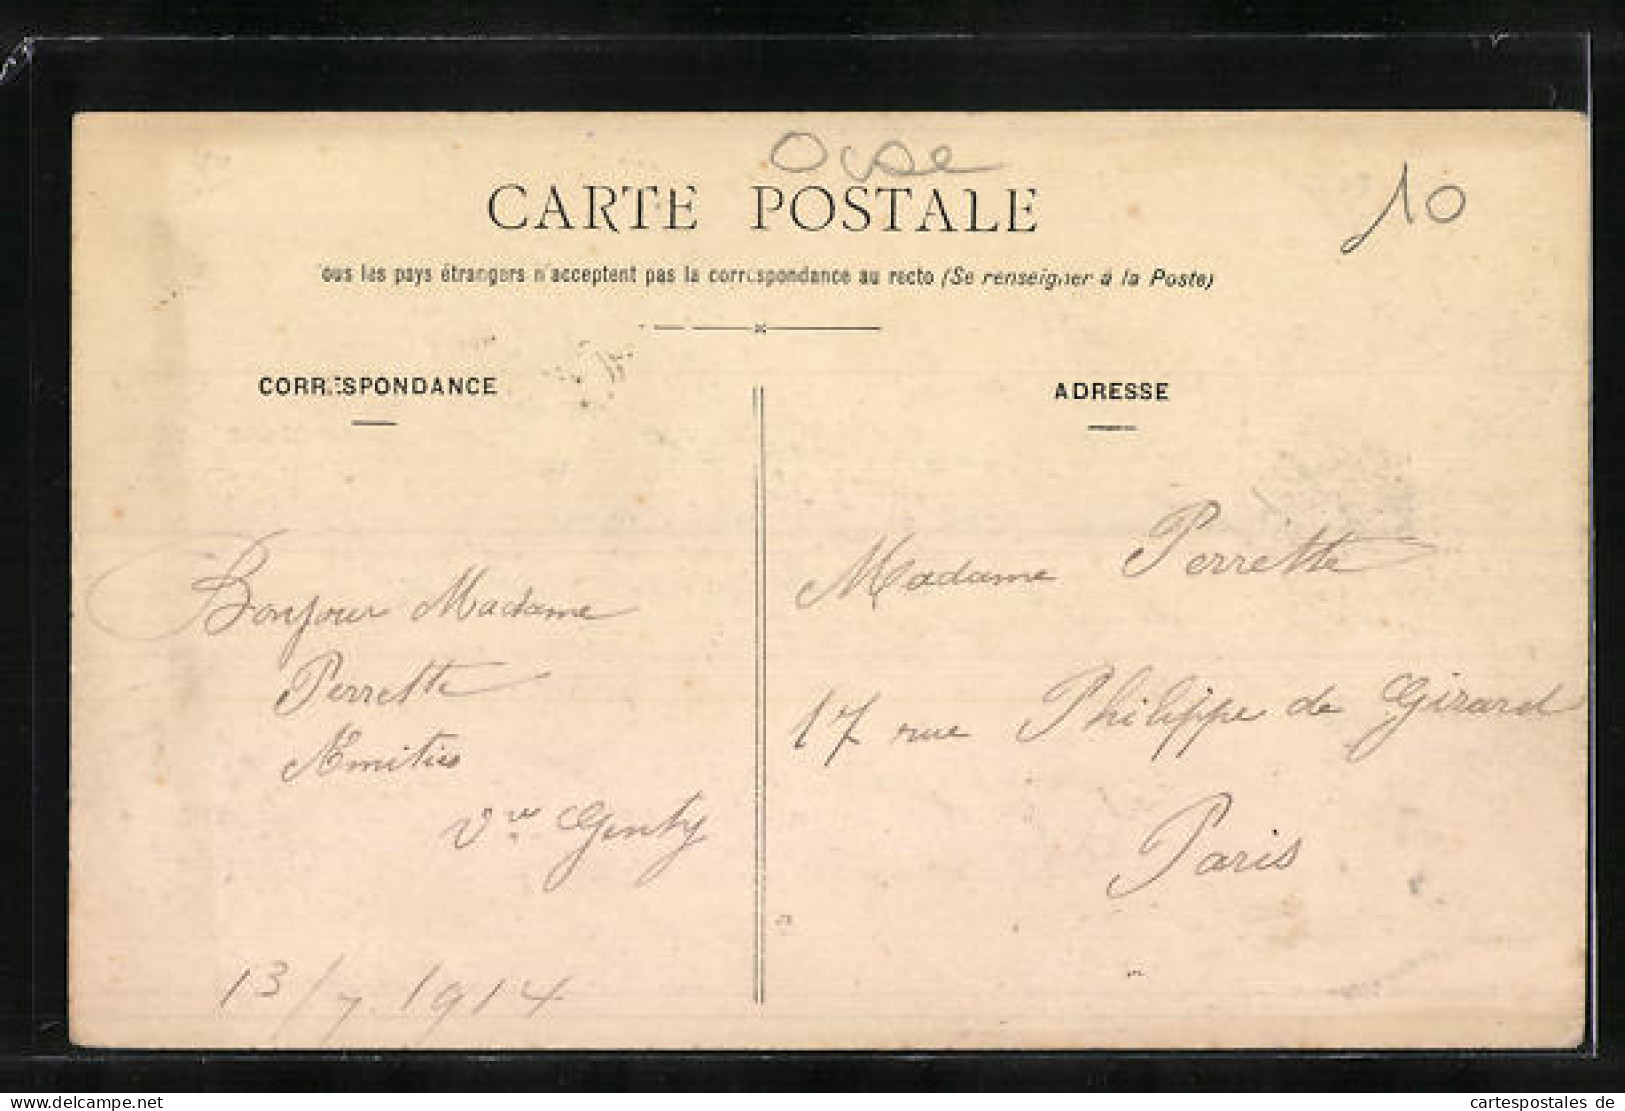 Oise
10
CARTE POSTALE
ous les pays étrangers n'acceptent pas la correspondance au recto (Se renseigner à la Poste)
CORRESPONDANCE
ADRESSE
Bonjour Madame
Perrette
Amitiés
Vve Genty
13/7 1914
Madame Perrette
17 rue Philippe de Girard
Paris
www.delcampe.net
cartespostales de